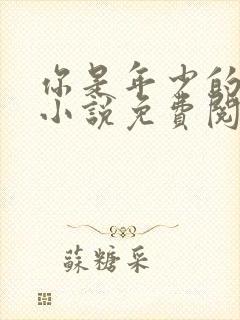 你是年少的
小說免費閱
蘇糖采